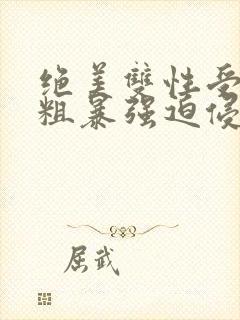 绝美双性受
粗暴强迫侵
屈武